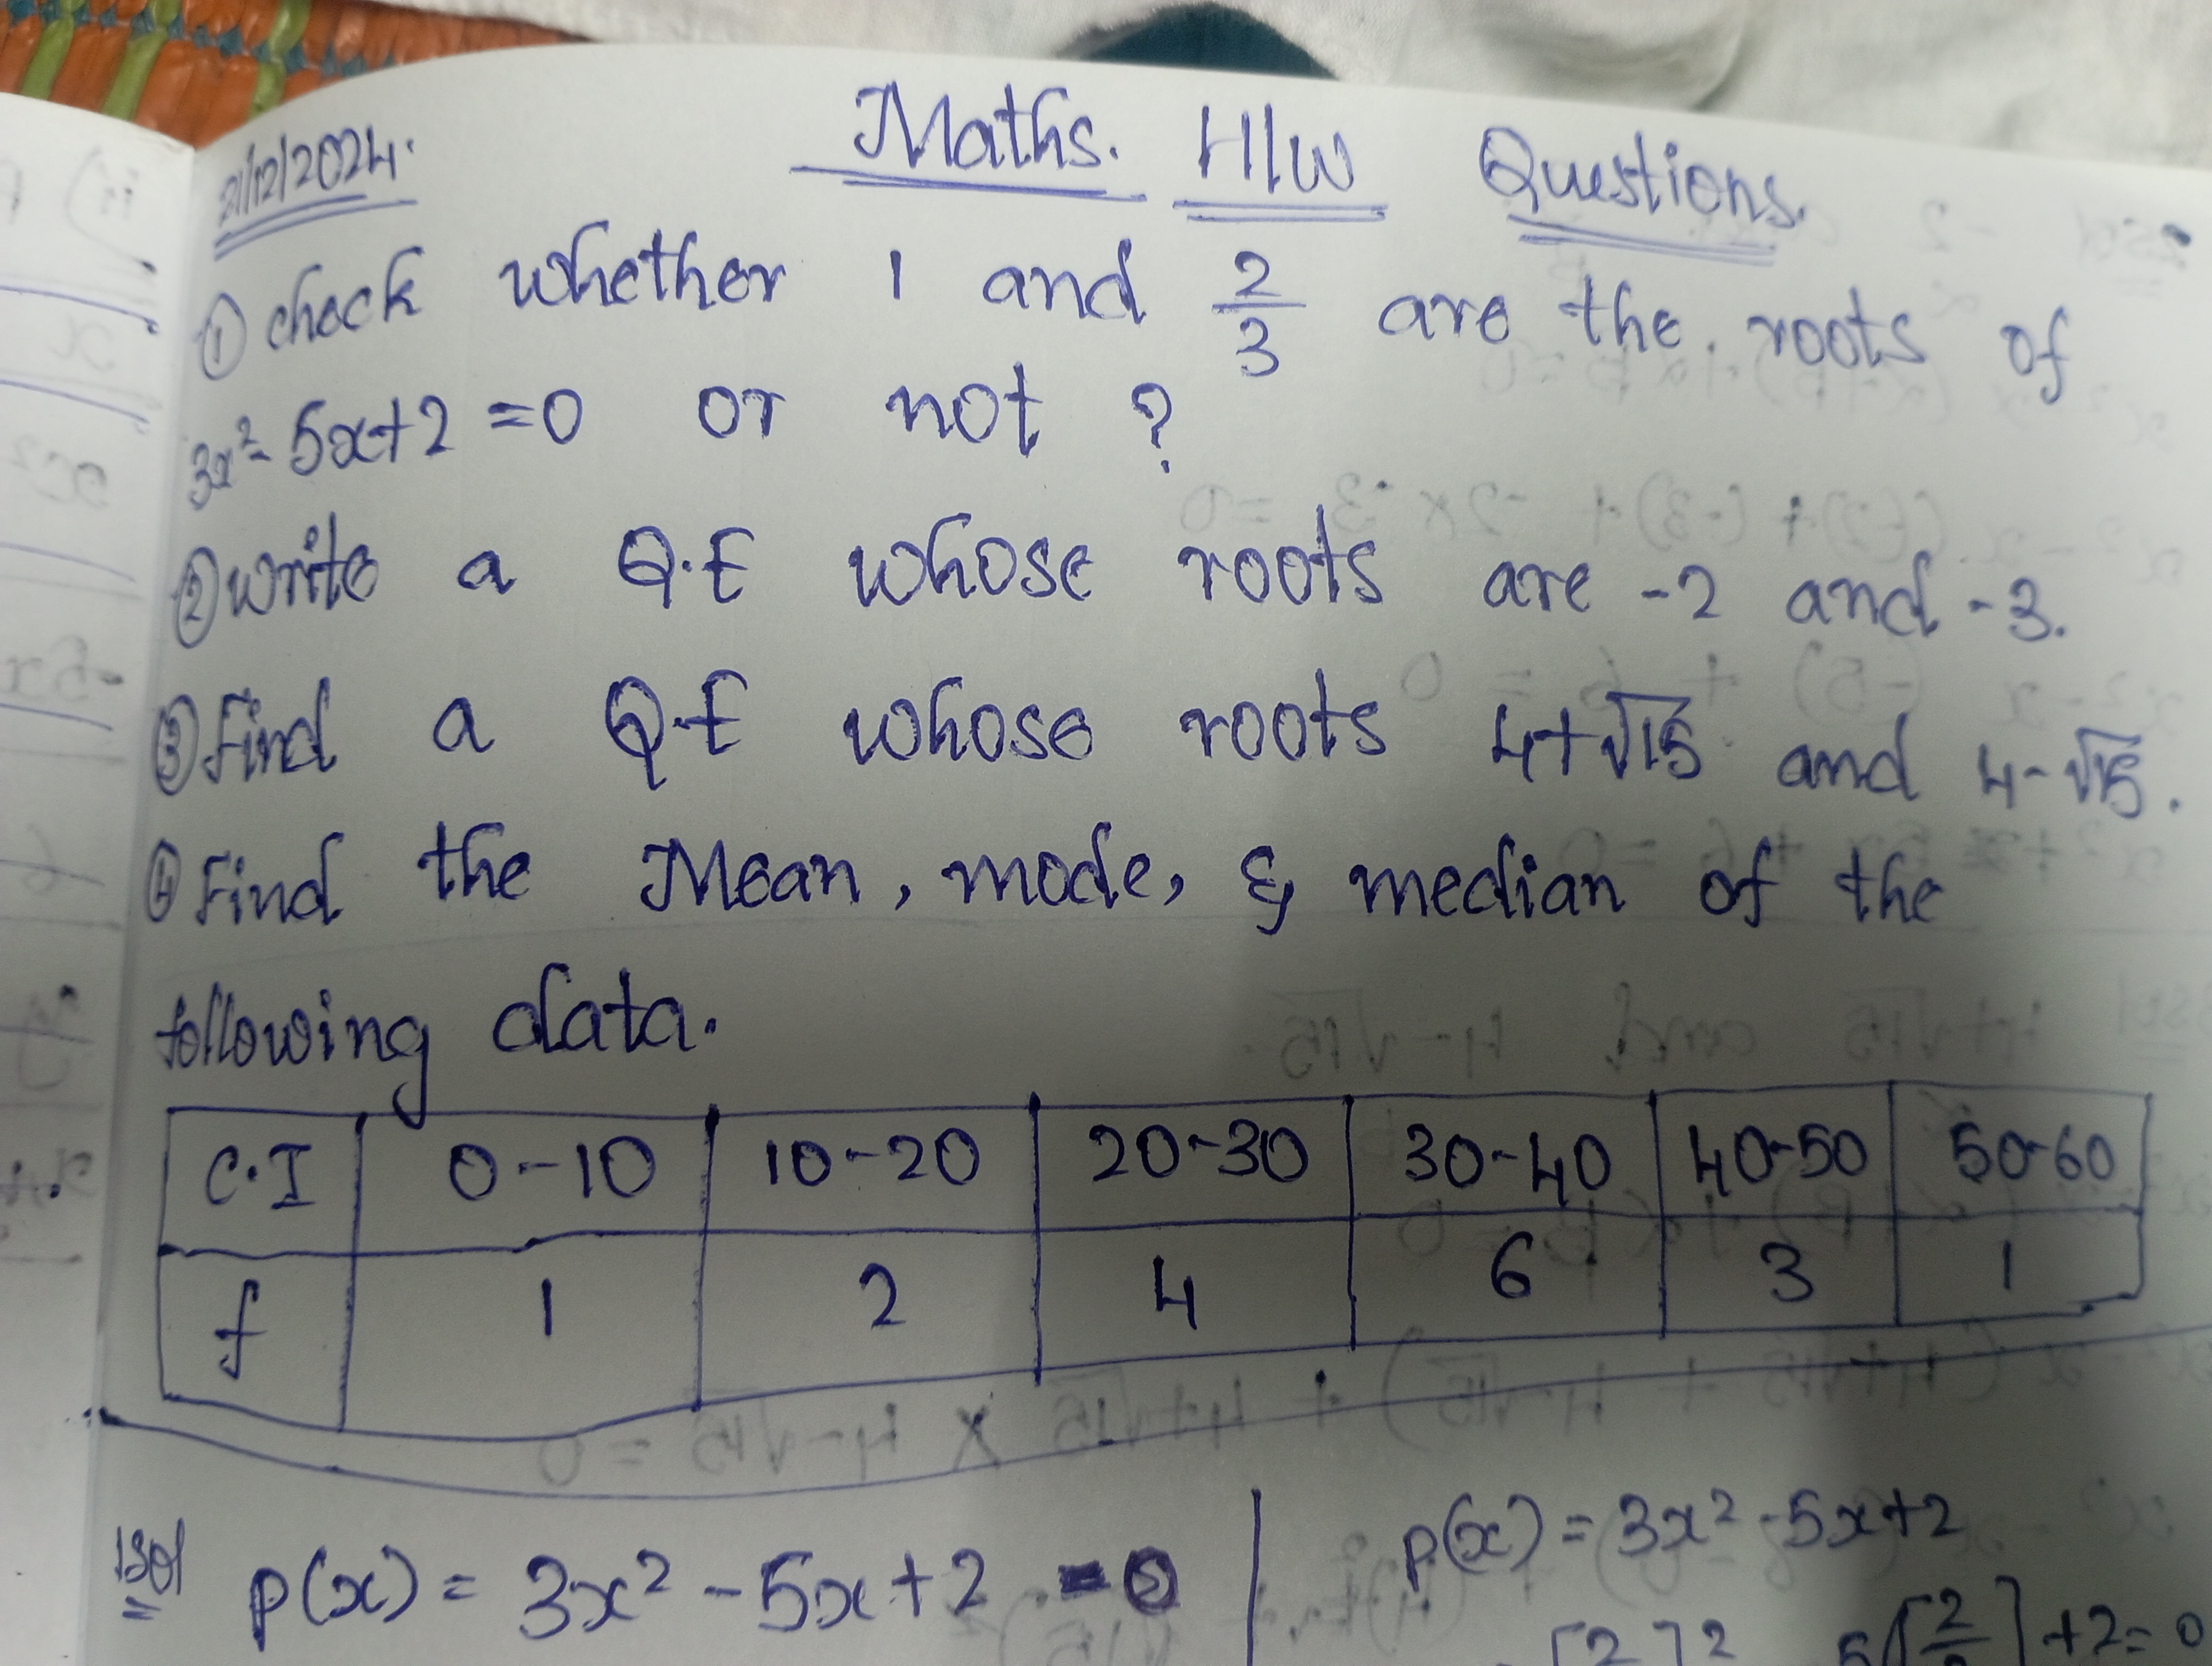 21/12/2024.
Maths. H/W Questions.
① check whether 1 and 2/3 are the roots of
3x² - 5x+2 =0 or not ?
② write a Q.E whose roots are -2 and -3.
③ Find a Q.E whose roots 4+√15 and 4-√15.
④ Find the Mean, mode, & median of the
following data.
C.I 0-10 10-20 20-30 30-40 40-50 50-60
f 1 2 4 6 3 1
1sol p(x) = 3x² - 5x+2 = 0
p(x) = 3x² - 5x+2
+2=0